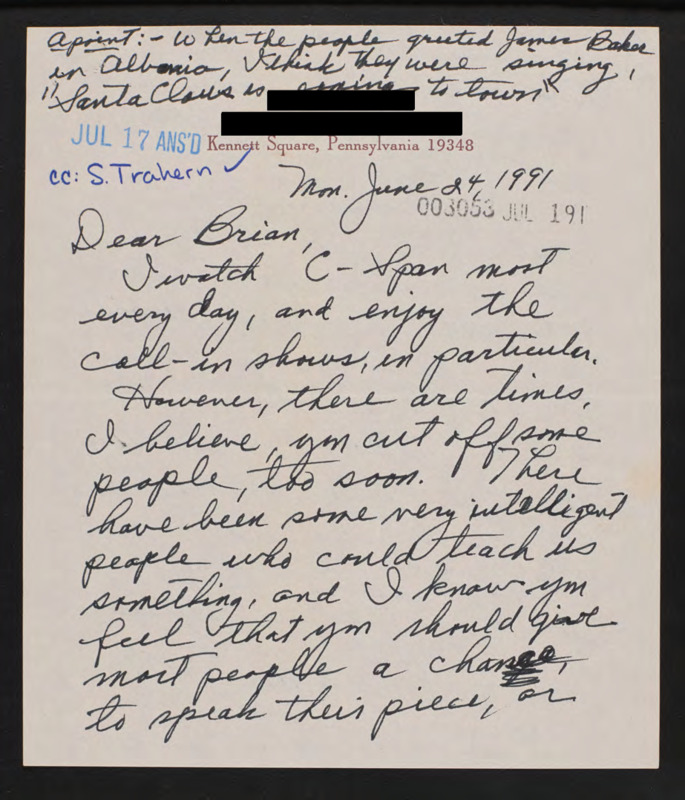 apoint:- When the people greeted James Baker
in Albania, I think they were singing,
"Santa Claus is coming to town"
JUL 17 ANS'D Kennett Square, Pennsylvania 19348
cc: S. Trahern ✓
Mon. June 24, 1991
003053 JUL 191
Dear Brian,
I watch C-Span most
every day, and enjoy the
call-in shows, in particular.
However, there are times,
I believe, you cut off some
people, too soon. There
have been some very intelligent
people who could teach us
something, and I know you
feel that you should give
most people a chance,
to speak their piece, or